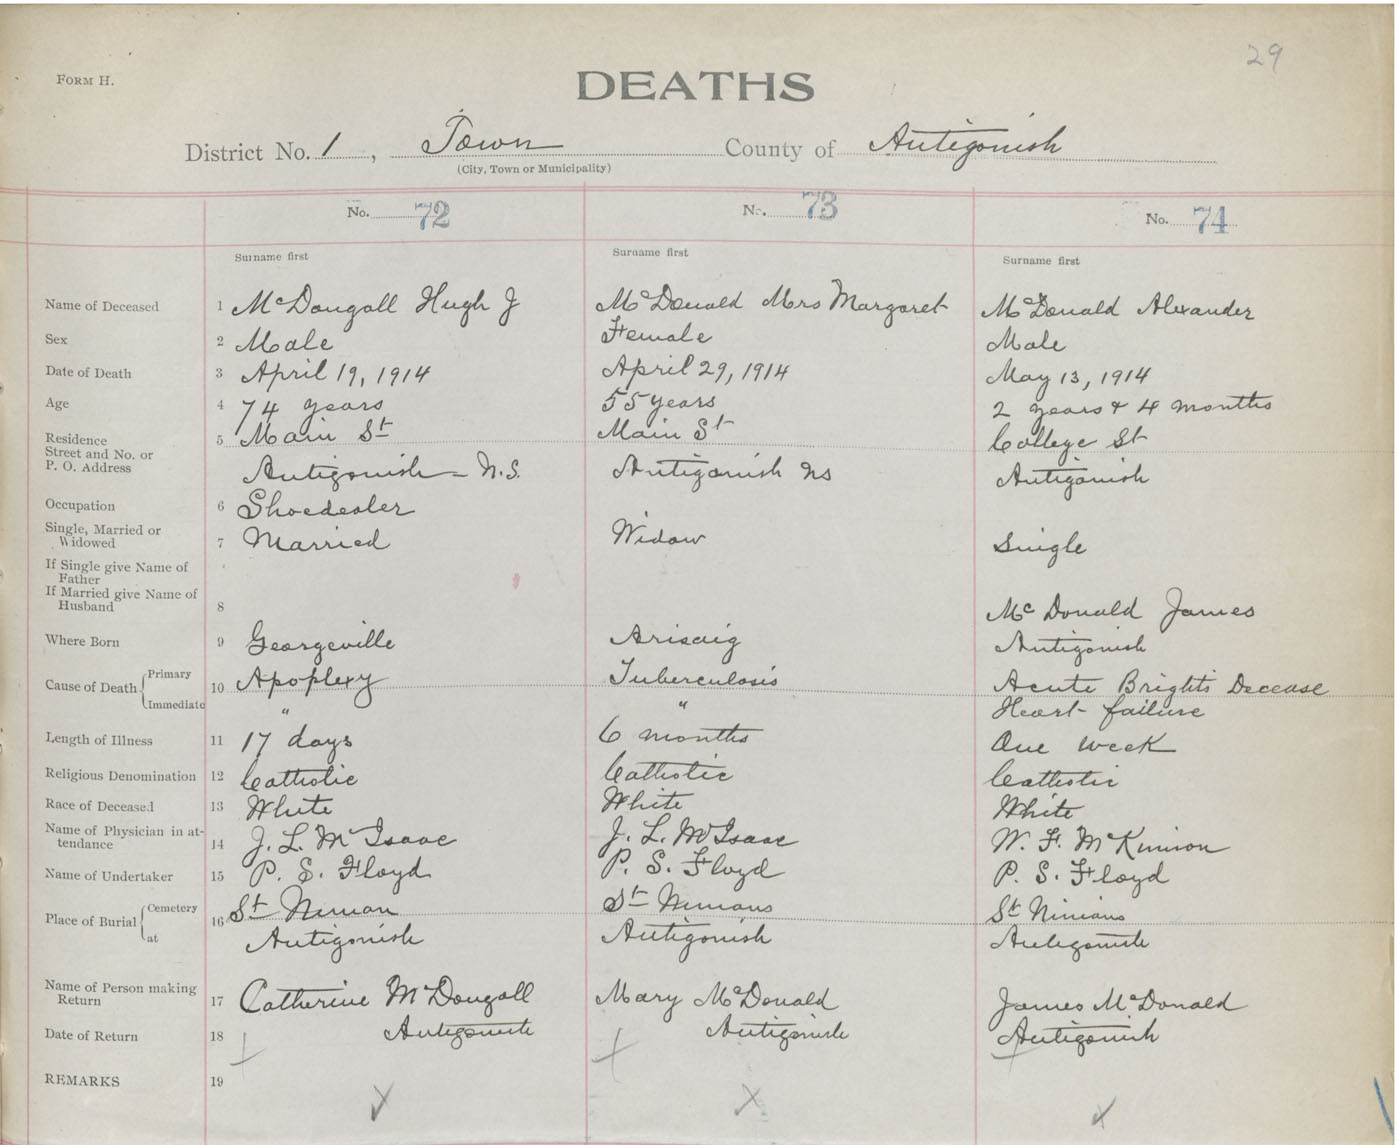 29
FORM H.
DEATHS
District No. 1, Town County of Antigonish
(City, Town or Municipality)
No. 72 No. 73 No. 74
Surname first Surname first Surname first
Name of Deceased 1 McDougall Hugh J McDonald Mrs Margaret McDonald Alexander
Sex 2 Male Female Male
Date of Death 3 April 19, 1914 April 29, 1914 May 13, 1914
Age 4 74 years 55 years 2 years & 4 months
Residence 5 Main St Main St College St
Street and No. or
P. O. Address Antigonish - N.S. Antigonish NS Antigonish
Occupation 6 Shoedealer
Single, Married or
Widowed 7 Married Widow Single
If Single give Name of
Father
If Married give Name of
Husband 8 McDonald James
Where Born 9 Georgeville Arisaig Antigonish
Cause of Death Primary 10 Apoplexy Tuberculosis Acute Brights Decease
Immediate " " Heart failure
Length of Illness 11 17 days 6 months One week
Religious Denomination 12 Catholic Catholic Catholic
Race of Deceased 13 White White White
Name of Physician in at-
tendance 14 J. L. McIsaac J. L. McIsaac W. F. McKinnon
Name of Undertaker 15 P. S. Floyd P. S. Floyd P. S. Floyd
Place of Burial Cemetery 16 St Ninian St Ninians St Ninians
at Antigonish Antigonish Antigonish
Name of Person making
Return 17 Catherine McDougall Mary McDonald James McDonald
Date of Return 18 Antigonish Antigonish Antigonish
REMARKS 19